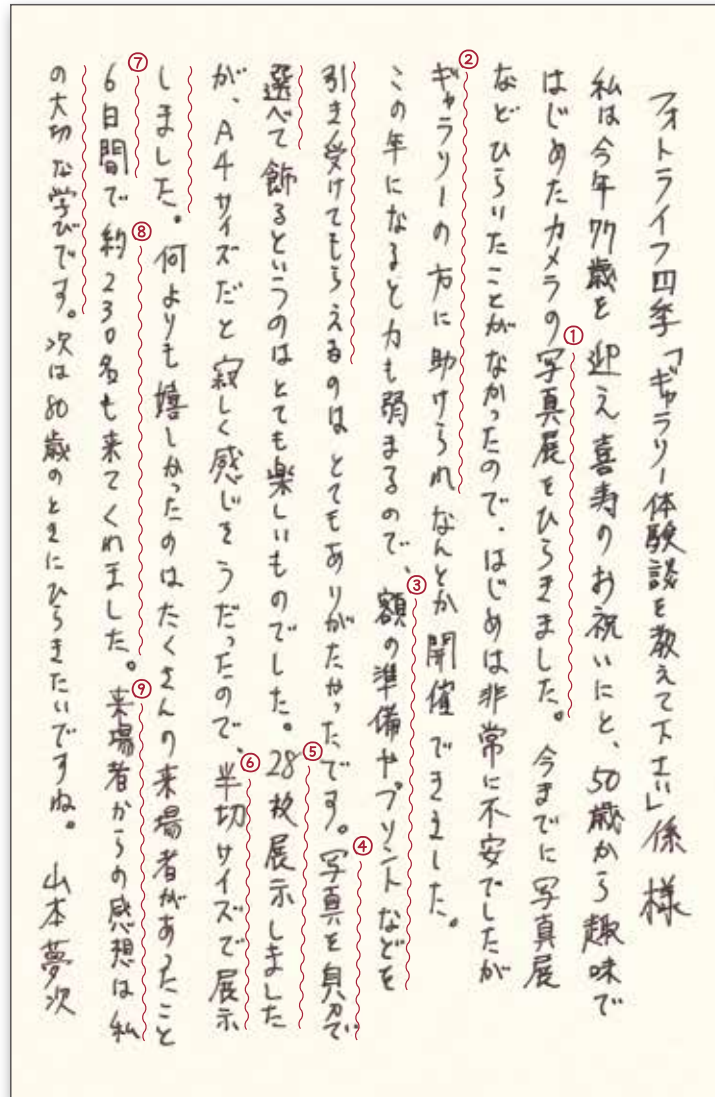 フォトライフ四季「ギャラリー体験談を教えて下さい」係 様
私は今年77歳を迎え喜寿のお祝いにと、50歳から趣味で
はじめたカメラの①写真展をひらきました。今までに写真展
などひらいたことがなかったので、はじめは非常に不安でしたが
②ギャラリーの方に助けられなんとか開催できました。
この年になると力も弱まるので、③額の準備やプリントなどを
引き受けてもらえるのはとてもありがたかったです。④写真を自分で
選べて飾るというのはとても楽しいものでした。⑤28枚展示しました
が、A4サイズだと寂しく感じそうだったので、⑥半切サイズで展示
しました。何よりも嬉しかったのはたくさんの来場者があったこと
⑦6日間で⑧約230名も来てくれました。⑨来場者からの感想は私
の大切な学びです。次は80歳のときにひらきたいですね。 山本夢次